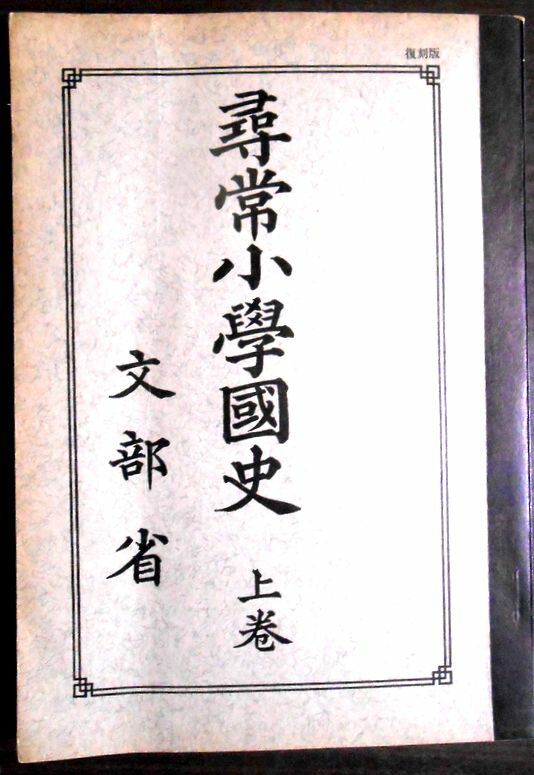 復刻版
尋常小學國史 上卷
文部省